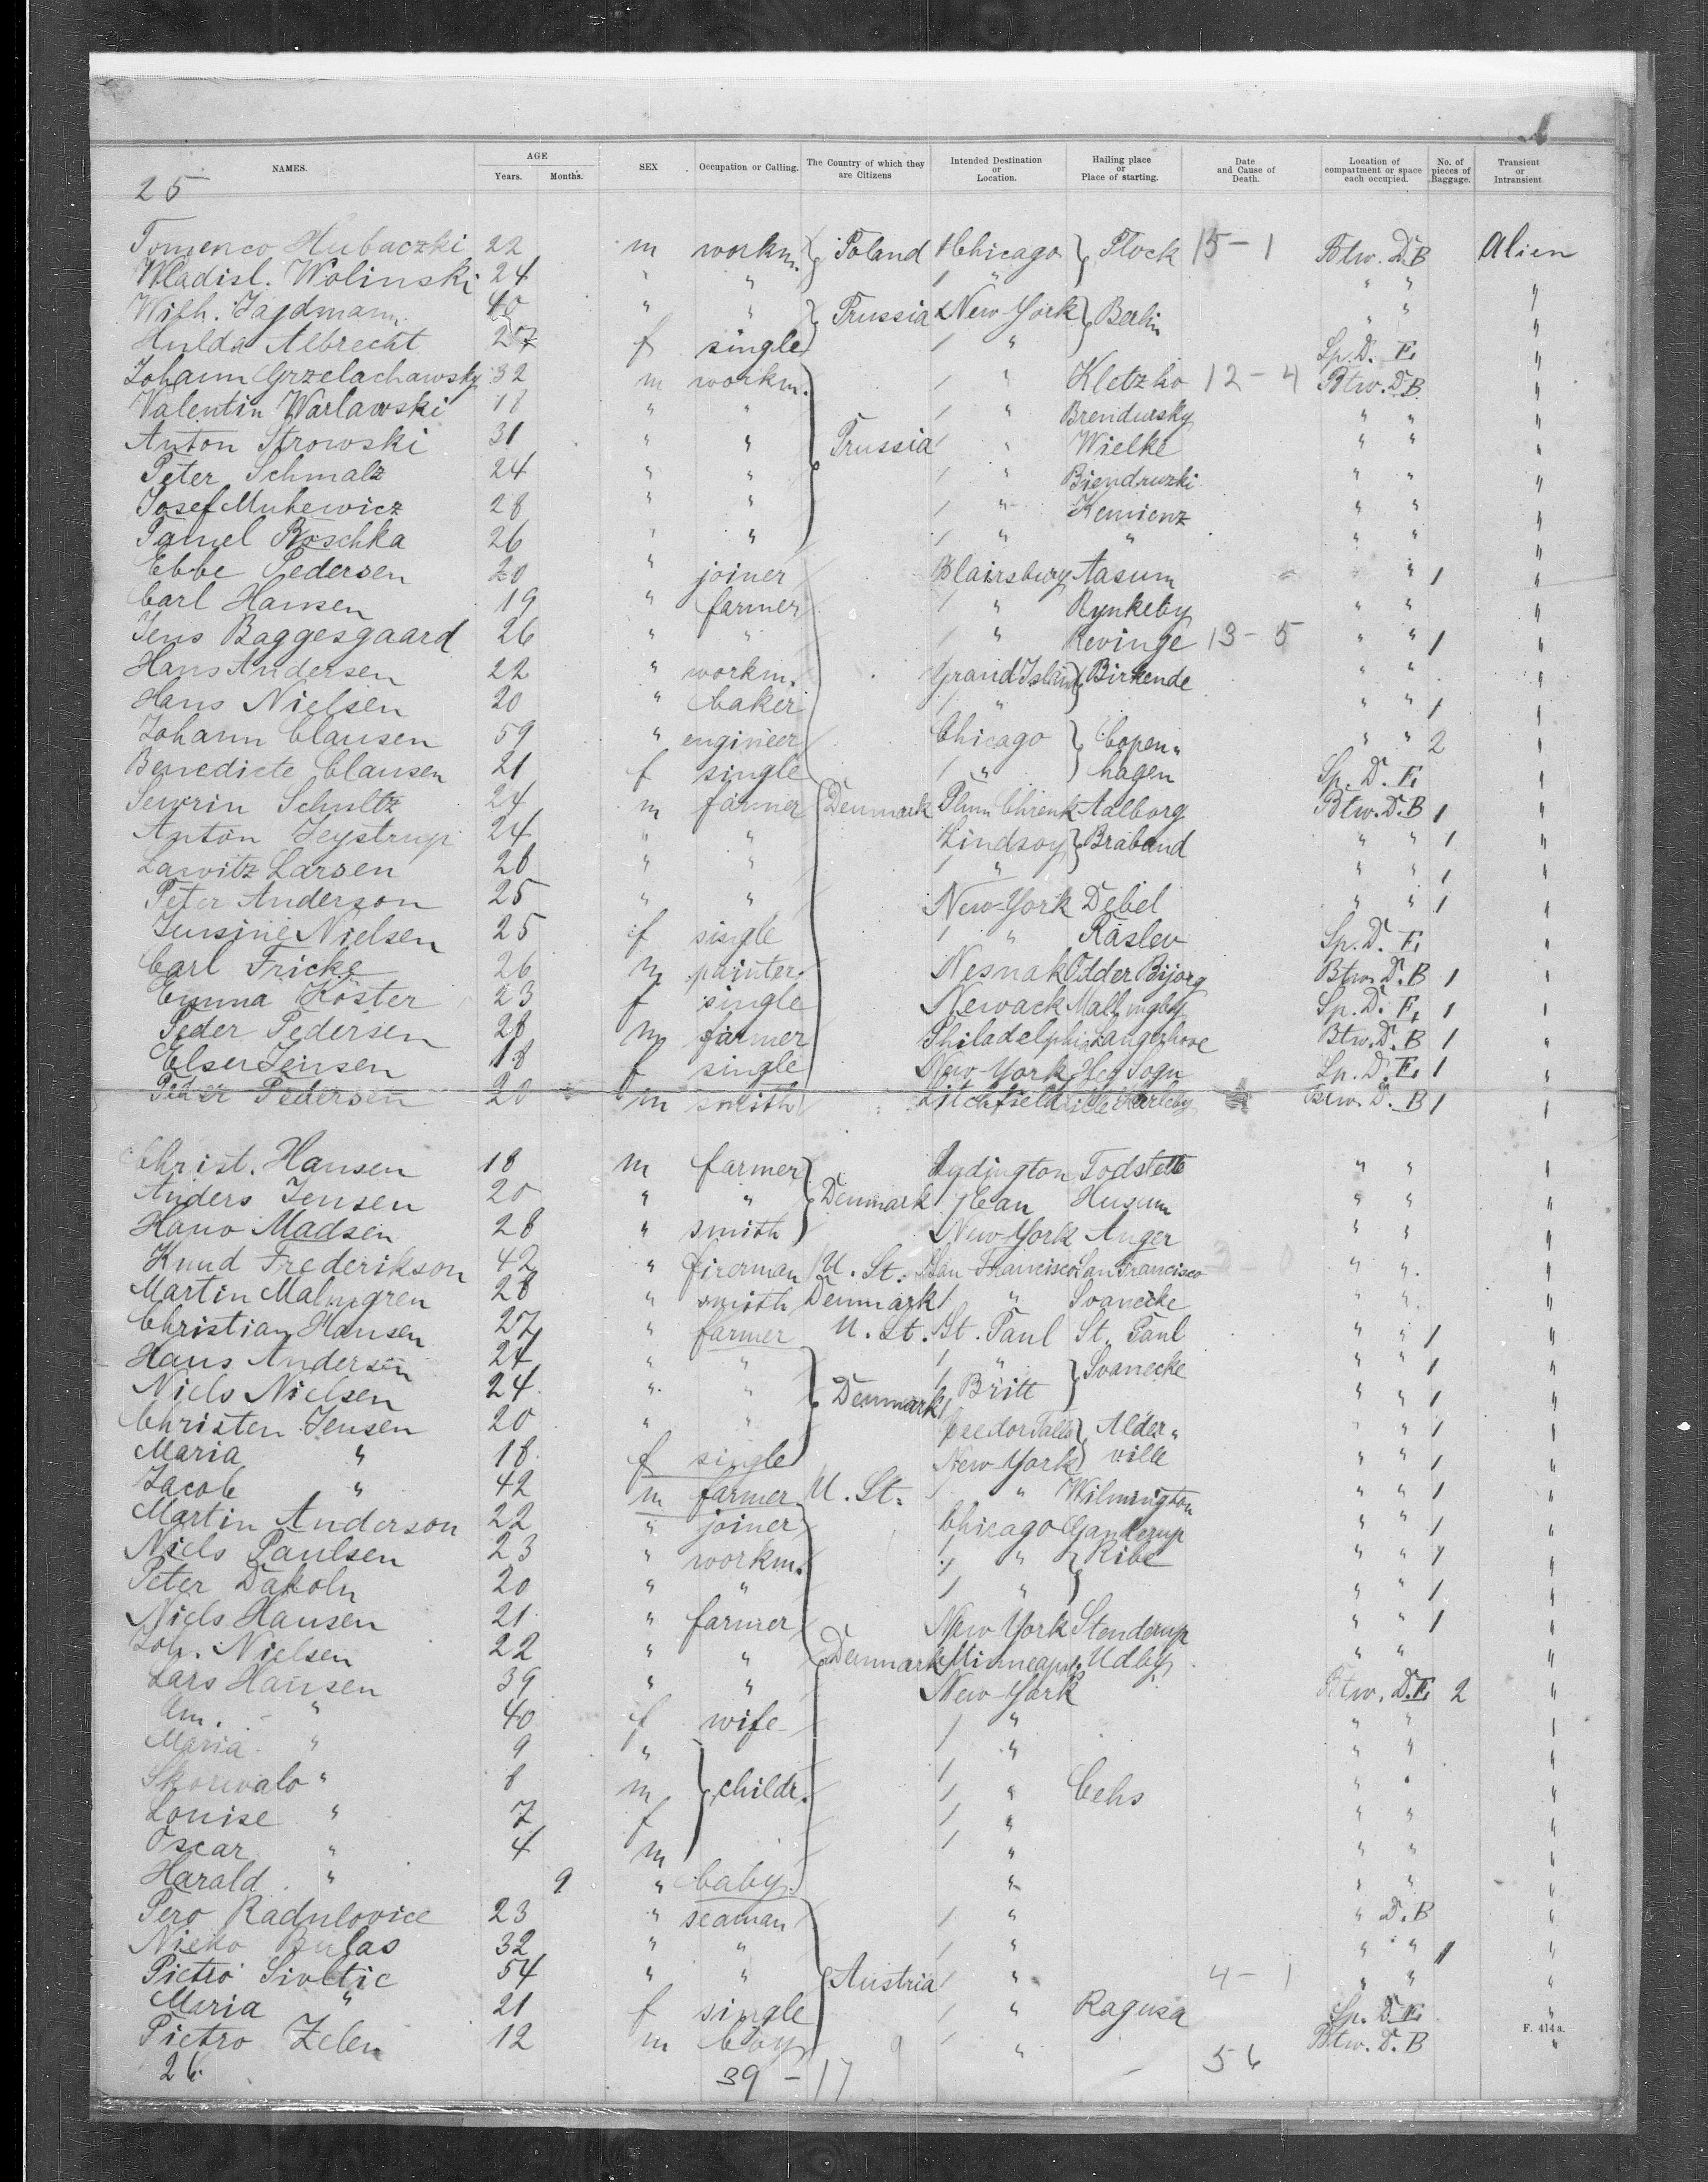 NAMES. AGE Years. Months. SEX Occupation or Calling. The Country of which they are Citizens Intended Destination or Location. Hailing place or Place of starting. Date and Cause of Death. Location of compartment or space each occupied. No. of pieces of Baggage. Transient or Intransient.
25
Tomenco Hubaczki 22 m workm. Poland Chicago Plock 15 - 1 Btw. D.B Alien
Wladisl. Wolinski 24 " " / " " " "
Wilh. Jagdmann 40 " " Prussia New York Berlin " " "
Hulda Albrecht 27 f single / " Sp. D. F, "
Johann Grzelachawsky 32 m workm. / " Kletzko 12 - 4 Btw. D.B "
Valentin Warlawski 18 " " / " Brendursky " " "
Anton Strowski 31 " " Prussia / " Wielke " " "
Peter Schmalz 24 " " / " Biendruzki " " "
Josef Mukewicz 28 " " / " Kemienz " " "
Pamel Roschka 26 " " / " " " " "
Ebbe Pedersen 20 " joiner Blairsburg Aasum " 1 "
Carl Hansen 19 " farmer / " Rynkeby " " "
Jens Baggesgaard 26 " " / " Revinge 13 - 5 " " 1 "
Hans Andersen 22 " workm. Grand Island Birkende " " "
Hans Nielsen 20 " baker / " " " 1 "
Johann Clausen 59 " engineer Chicago Copen" " " 2 "
Benedicte Clausen 21 f single / " hagen Sp. D. F, "
Sewrin Schultz 24 m farmer Denmark Plum Chrenk Aalborg Btw. D.B 1 "
Anton Jeystrup 24 " " Lindsoy Braband " " 1 "
Lawitz Larsen 28 " " / " " " 1 "
Peter Anderson 25 " " New-York Debel " " 1 "
Jensine Nielsen 25 f single / " Räslev Sp. D. F, "
Carl Fricke 26 m painter Nesnak Odder Bijorg Btw. D.B 1 "
Emma Köster 23 f single Newack Mallingby Sp. D. F, 1 "
Peder Pedersen 28 m farmer Philadelphia Langeshove Btw. D.B 1 "
Elser Jensen 18 f single New-York Heg Sogn Sp. D. F, 1 "
Peder Pedersen 20 m smith Litchfield Lille Harleby Btw. D. B 1 "
Christ. Hansen 18 m farmer Lydington Todstette " " "
Anders Jensen 20 " " Denmark / Jean Husum " " "
Hans Madsen 28 " smith New-York Anger " " "
Knud Frederikson 42 " fireman U. St. San Francisco San Francisco 3 - 0 " " "
Martin Malmgren 28 " smith Denmark / " Svanecke " " "
Christian Hansen 27 " farmer U. St. St. Paul St. Paul " " 1 "
Hans Andersen 24 " " / " Svanecke " " 1 "
Niels Nielsen 24 " " Denmark / Britt " " 1 "
Christen Jensen 20 " " Ceedor Falls Alder" " " 1 "
Maria " 18 f single New-York ville " " 1 "
Jacob " 42 m farmer U. St. / " Wilmington " " 1 "
Martin Anderson 22 " joiner Chicago Ganderup " " 1 "
Niels Paulsen 23 " workm. / " Ribe " " 1 "
Peter Dakoln 20 " " / " " " 1 "
Niels Hansen 21 " farmer New York Stenderup " " 1 "
Joh. Nielsen 22 " " Denmark Minneapol. Udby " " "
Lars Hansen 39 " " New-York Btw. D.F, 2 "
An. " 40 f wife / " " " "
Maria " 9 " / " " " "
Skorwalo " 8 m childr. / " Cehs " " "
Louise " 7 f / " " " "
Oscar " 4 m / " " " "
Harald " 9 " baby " " " "
Pero Radulovice 23 " seaman / " " D.B "
Nieko Bulas 32 " " / " " " 1 "
Pietro Sivltic 54 " " Austria / " 4 - 1 " " "
Maria " 21 f single / " Ragusa Sp. D. F, "
Pietro Zelen 12 m boy / " Btw. D. B "
F. 414 a.
26. 39 - 17 9 56